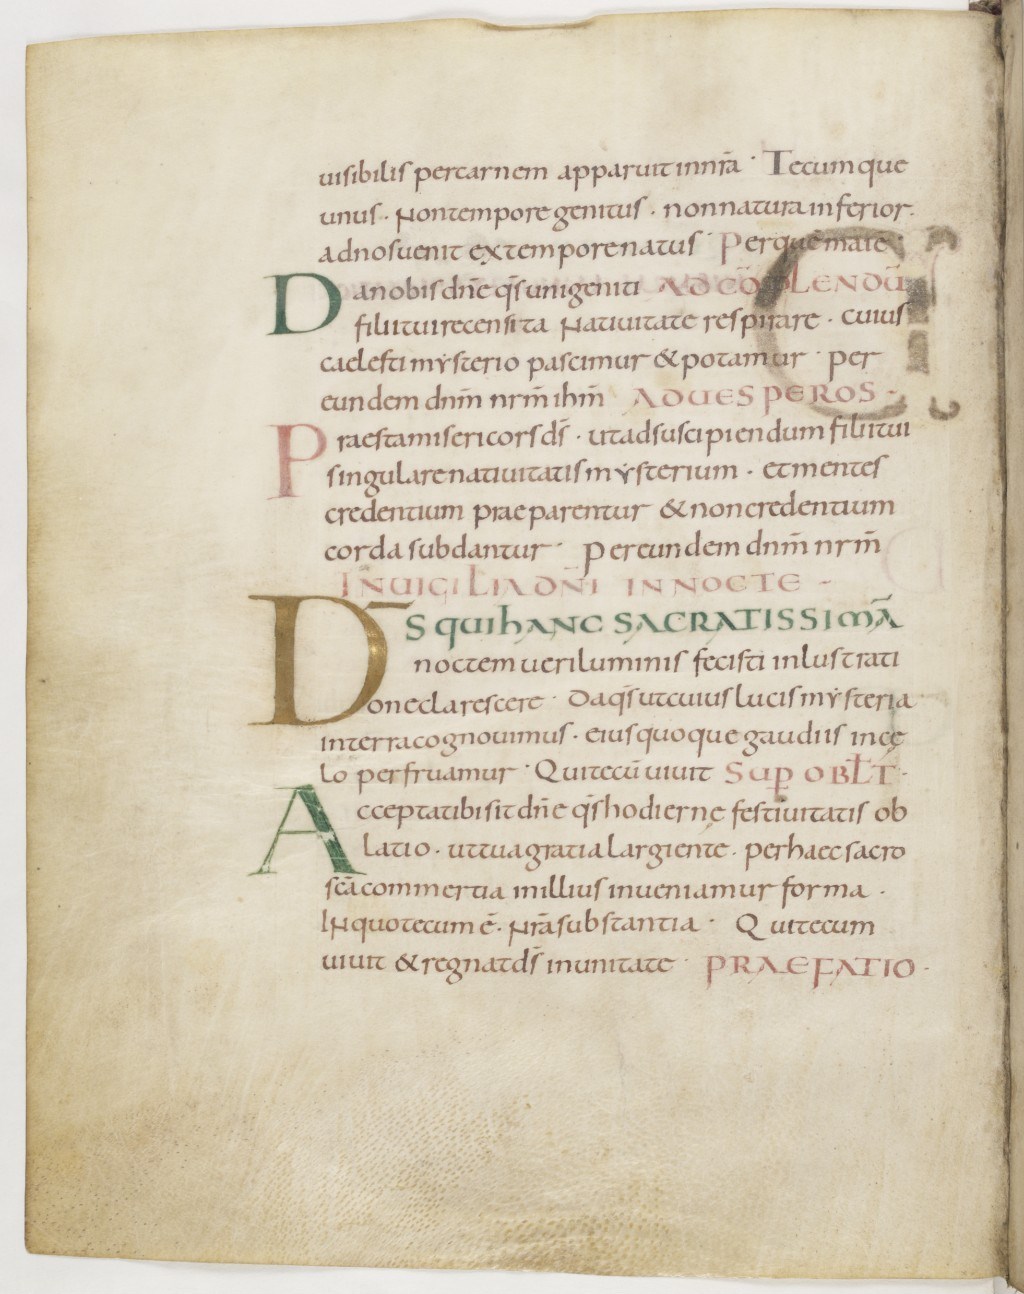 uisibilis per carnem apparuit in nr̄a · Tecumque
unus · Non tempore genitus · non natura inferior ·
ad nos uenit ex tempore natus · Per quē maie ·
Da nobis dn̄e q̄s unigeniti AD CŌPLENDŪ
filii tui recensita Natiuitate respirare · cuius
caelesti mẏsterio pascimur & potamur · per
eundem dnm̄ nrm̄ ihm̄ AD UESPEROS ·
Praesta misericors ds̄ · ut ad suscipiendum filii tui
singulare natiuitatis mẏsterium · et mentes
credentium praeparentur & non credentium
corda subdantur · Per eundem dnm̄ nrm̄
IN UIGILIA DN̄I IN NOCTE ·
D̄S qui hANC SACRATISSIMĀ
noctem ueri luminis fecisti inlustrati
one clarescere · Da q̄s ut cuius lucis mẏsteria
in terra cognouimus · eius quoque gaudiis in cę
lo perfruamur · Qui tecū uiuit SUP̱ OBL̄T ·
Accepta tibi sit dn̄e q̄s hodiernę festiuitatis ob
latio · ut tua gratia largiente · per haec sacro
sc̄a commertia in illius inueniamur forma ·
IN quo tecum ē · Nr̄a substantia · Qui tecum
uiuit & regnat ds̄ in unitate · PRAEFATIO ·